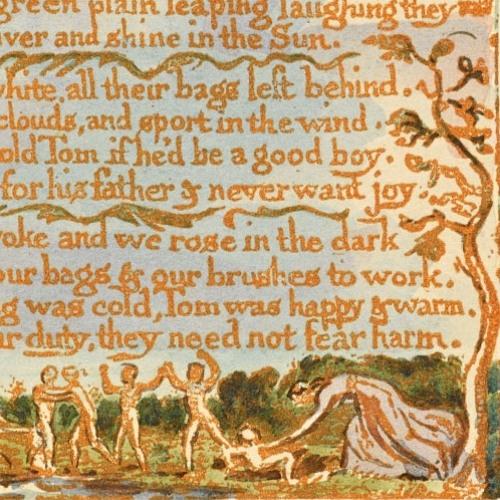 green plain leaping laughing they
iver and shine in the Sun.
white all their bags left behind.
clouds, and sport in the wind
old Tom if he'd be a good boy.
for his father & never want joy.
woke and we rose in the dark
our bags & our brushes to work.
g was cold, Tom was happy & warm.
ir duty, they need not fear harm.